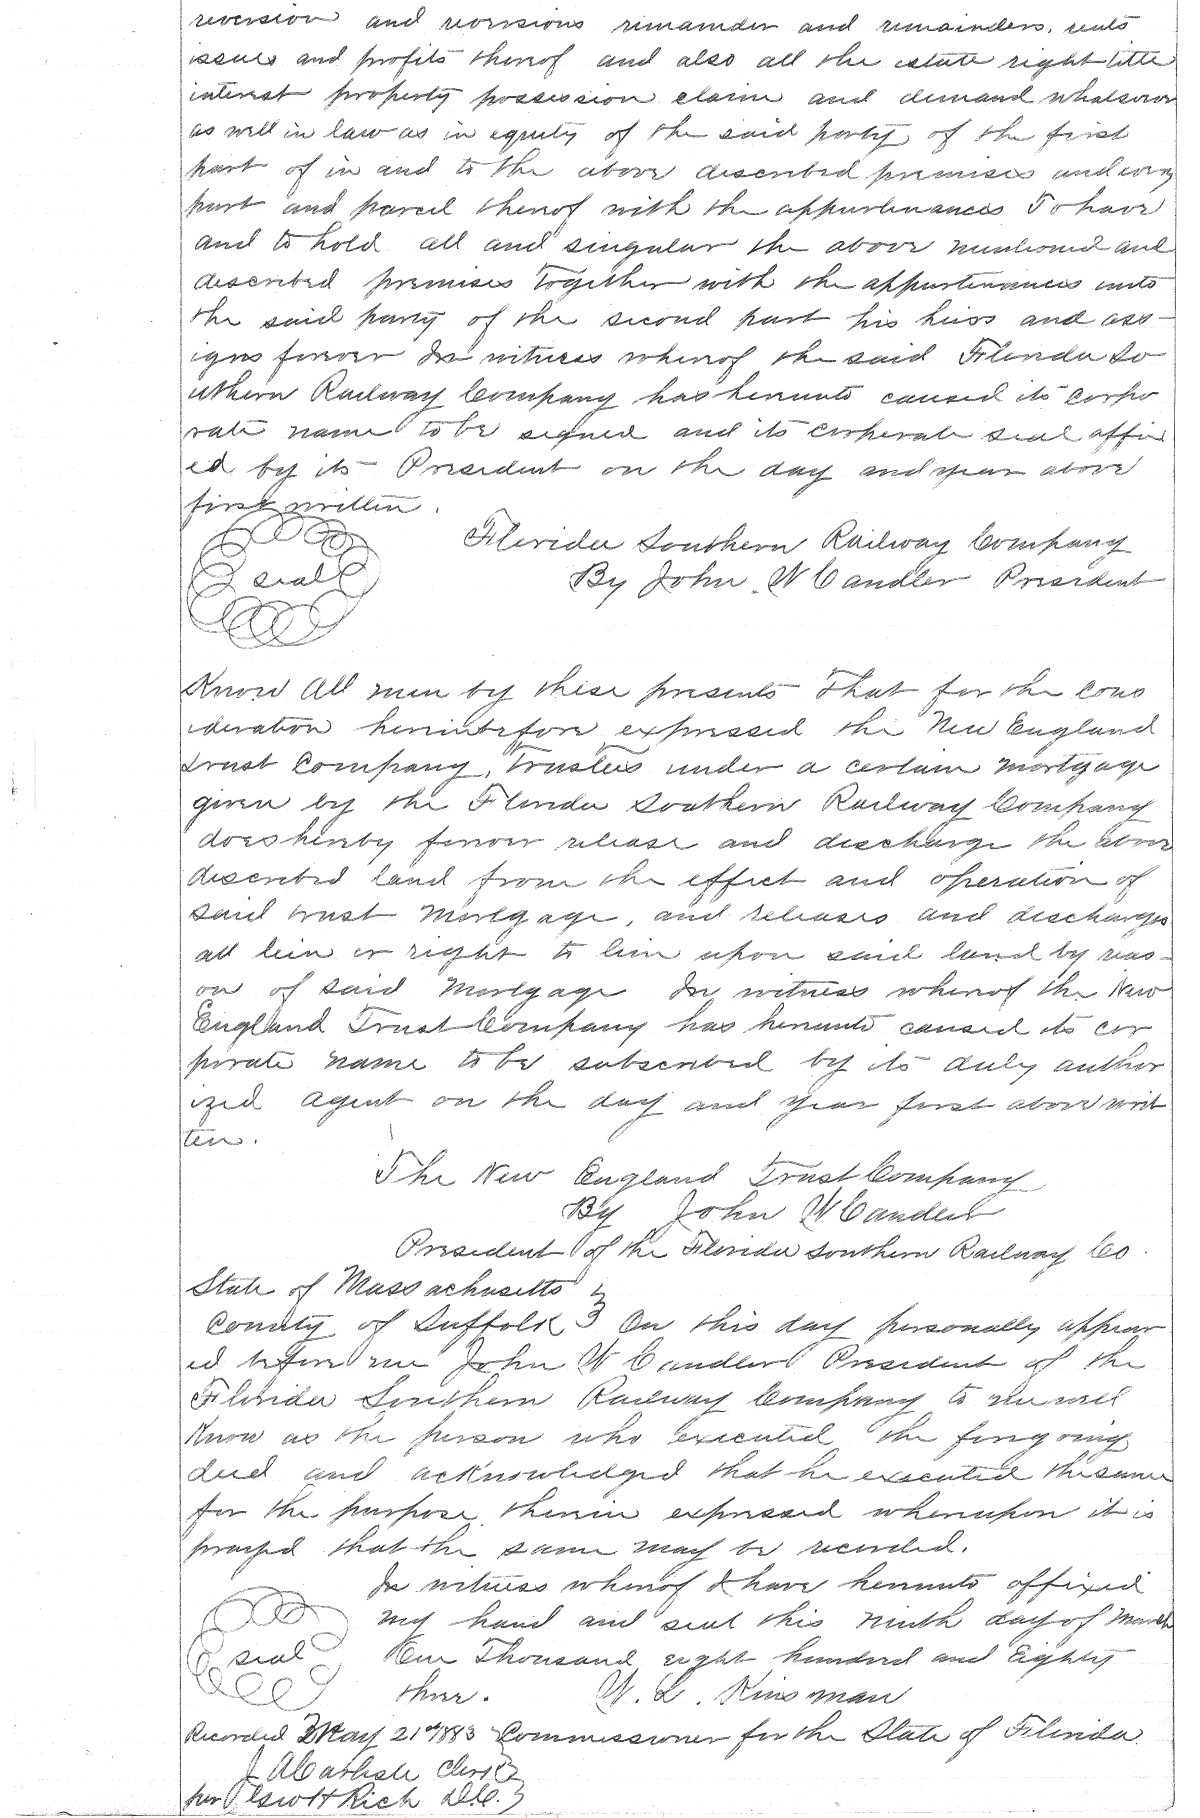 reversion and reversions remainder and remainders, rents
issues and profits thereof and also all the estate right title
interest property possession claim and demand whatsoever
as well in law as in equity of the said party of the first
part of in and to the above described premises and every
part and parcel thereof with the appurtenances To have
and to hold all and singular the above mentioned and
described premises together with the appurtenances unto
the said party of the second part his heirs and ass-
igns forever In witness whereof the said Florida So
uthern Railway Company has hereunto caused its corpo
rate name to be signed and its corporate seal affix
ed by its President on the day and year above
first written.
Florida Southern Railway Company
seal
By John W Candler President
Know All men by these presents That for the cons
ideration hereintofore expressed the New England
trust Company, Trustees under a certain mortgage
given by the Florida Southern Railway Company
does hereby forever release and discharge the above
described land from the effect and operation of
said trust mortgage, and releases and discharges
all lien or right to lien upon said land by reas-
on of said mortgage In witness whereof the New
England Trust Company has hereunto caused its cor
porate name to be subscribed by its duly author
ized agent on the day and year first above writ
ten.
The New England Trust Company
By John W Candler
President of the Florida Southern Railway Co.
State of Massachusetts
County of Suffolk } On this day personally appear
ed before me John W Candler President of the
Florida Southern Railway Company to me well
Know as the person who executed the foregoing
deed and acknowledged that he executed the same
for the purpose therein expressed whereupon it is
prayed that the same may be recorded.
In witness whereof I have hereunto affixed
my hand and seal this ninth day of March
seal One Thousand eight hundred and Eighty
three. W. L. Kinsman
Recorded May 21st 1883 Commissioner for the State of Florida.
J A Carlisle Clerk }
per H Rich D.C. }